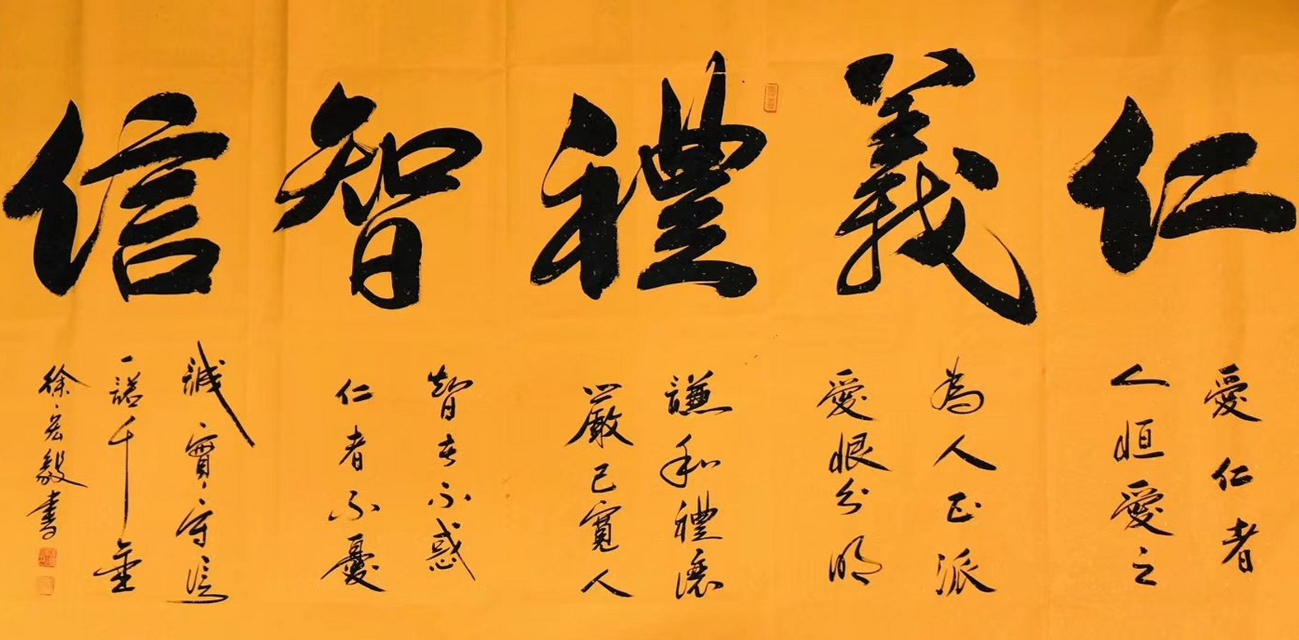 仁義禮智信
愛仁者
人恒愛之
為人正派
愛恨分明
謙和禮讓
嚴己寬人
智者不惑
仁者不憂
誠實守信
一諾千金
徐宏毅書